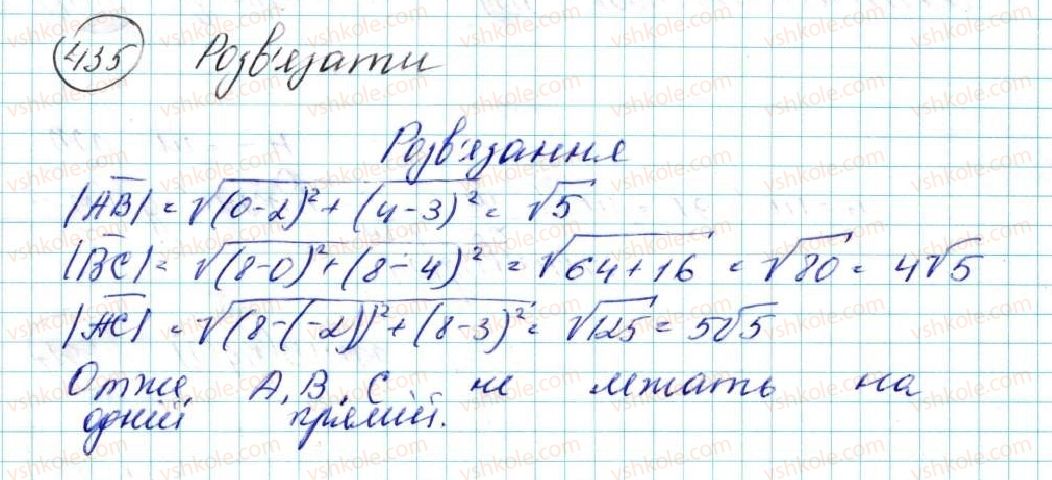 435 Розв'язати
Розв'язання
|AB| = √(0-2)² + (4-3)² = √5
|BC| = √(8-0)² + (8-4)² = √64+16 = √80 = 4√5
|AC| = √(8-(-2))² + (8-3)² = √125 = 5√5
Отже, A, B, C не лжать на
одній прямій.